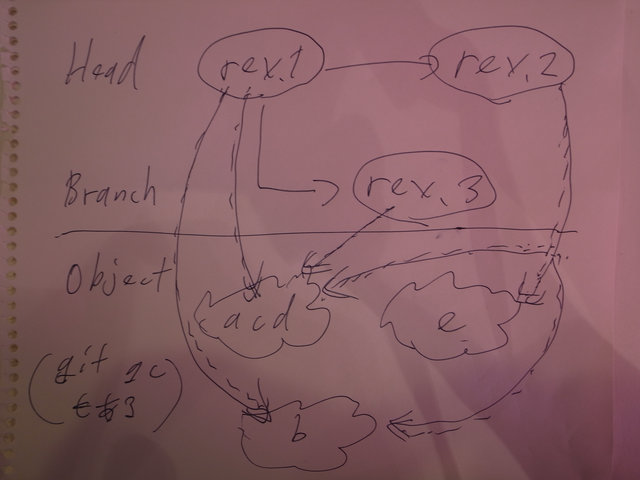 Head
rev.1
rev.2
Branch
rev.3
Object
acd
e
(git gc
b